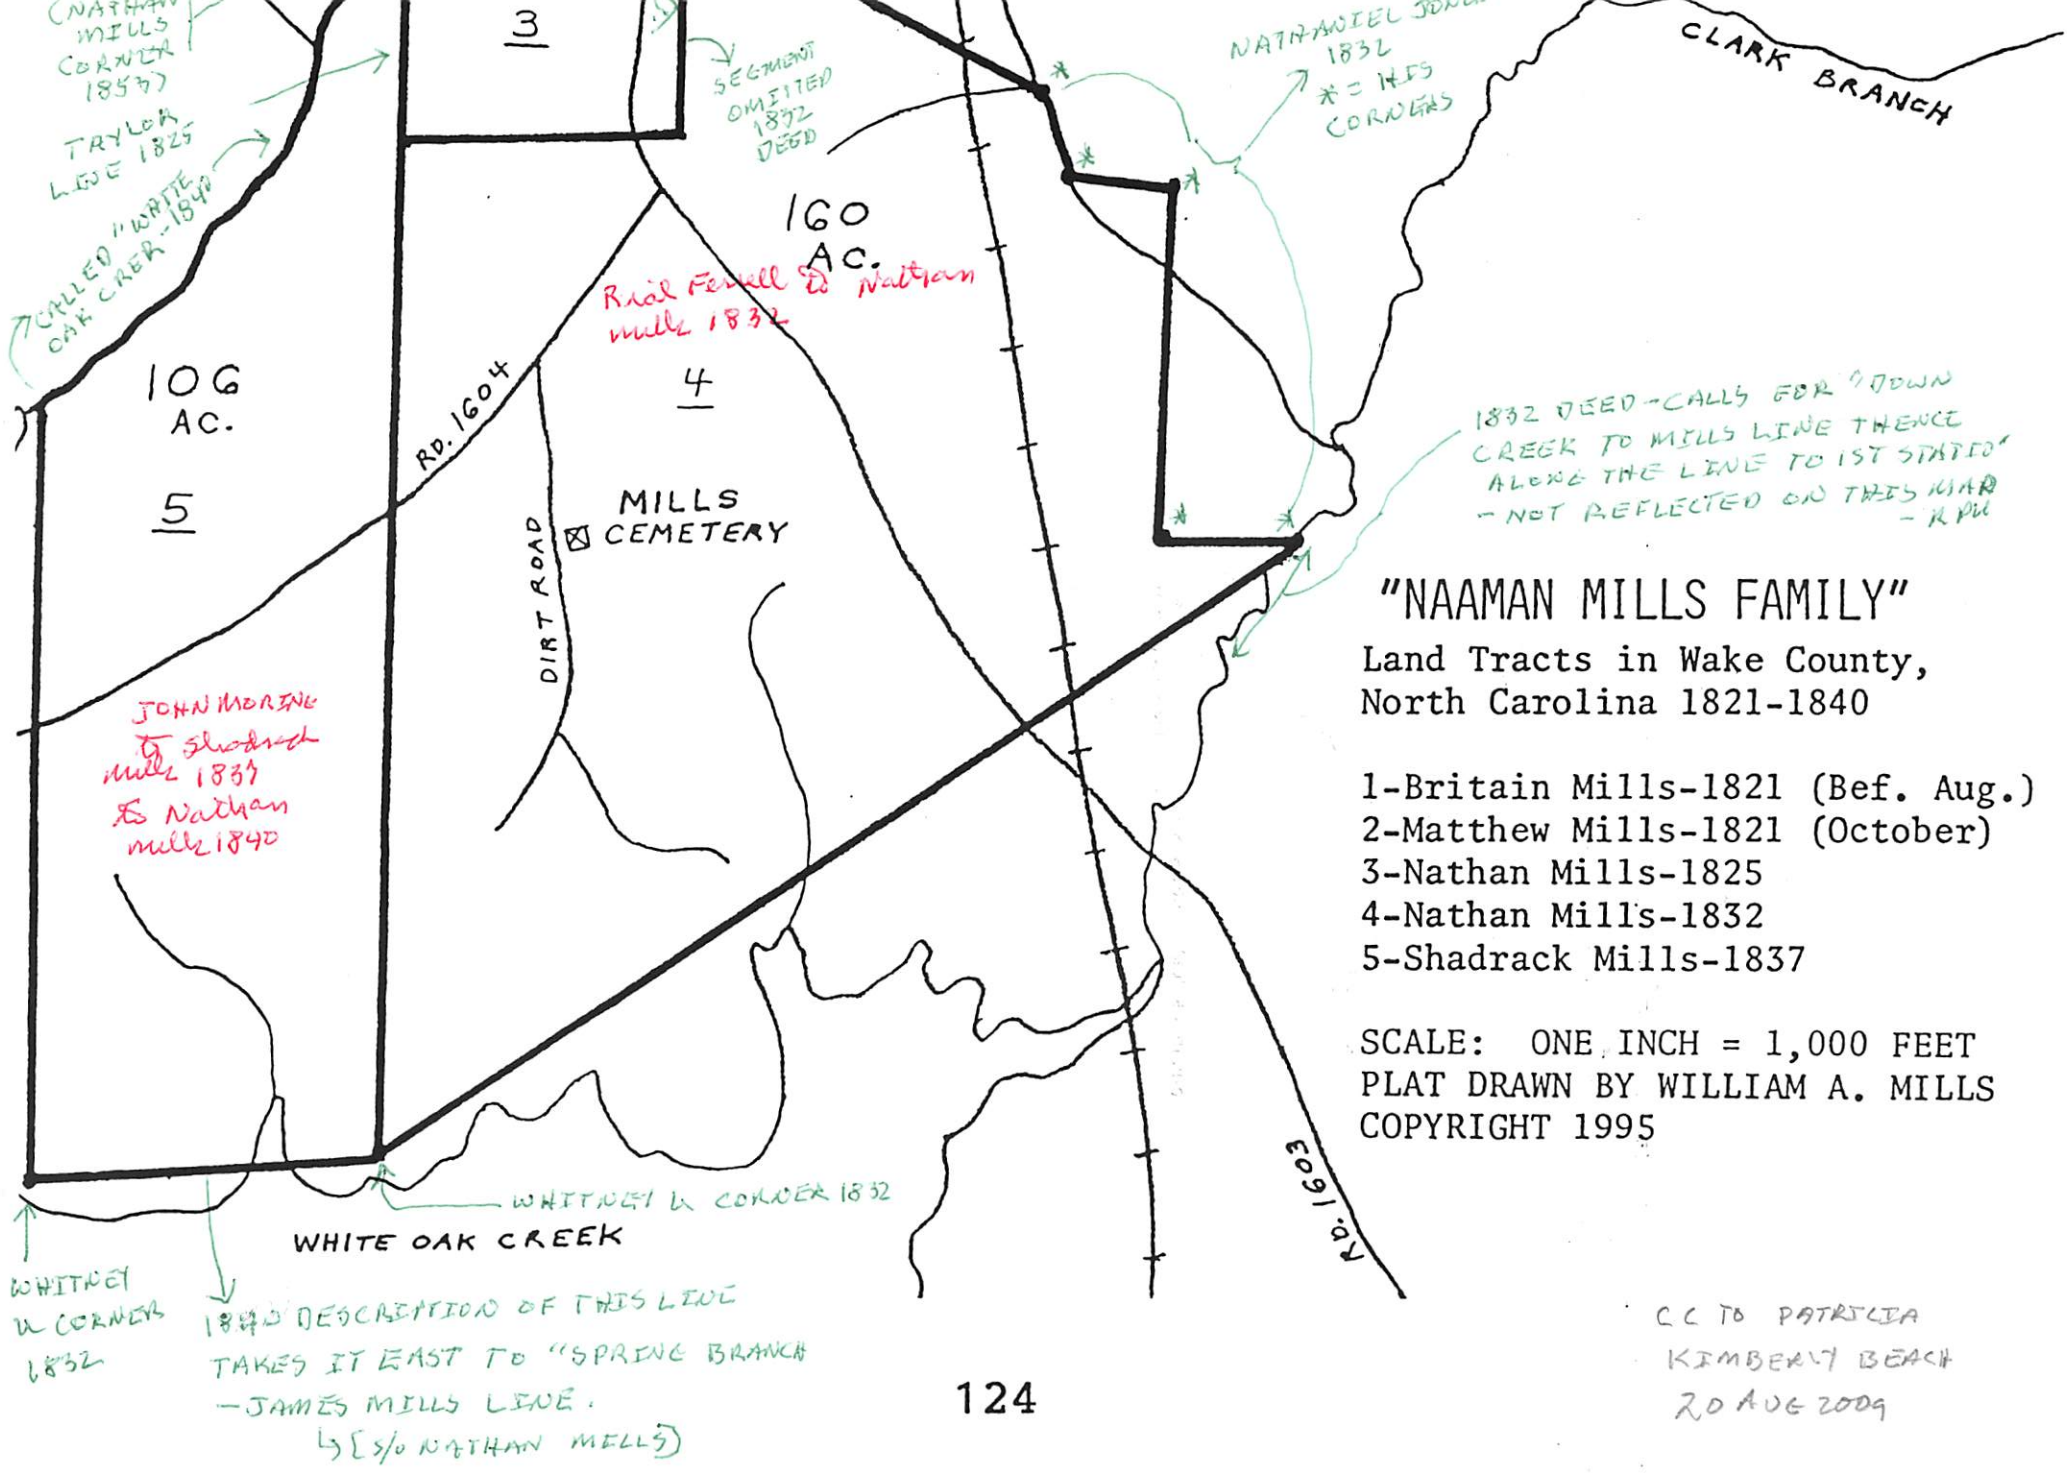 (NATHAN
MILLS
CORNER
1853?)
TAYLOR
LINE 1825
CALLED "WHITE
OAK CREEK"-1840
3
SEGMENT
OMITTED
1832
DEED
NATHANIEL JONES
1832
* = HIS
CORNERS
CLARK BRANCH
160
AC.
Rial Ferrell to Nathan
Mills 1832
4
106
AC.
5
RD. 1604
MILLS
CEMETERY
DIRT ROAD
JOHN MORING
to Shadrach
Mills 1837
to Nathan
Mills 1840
1832 DEED-CALLS FOR "DOWN
CREEK TO MILLS LINE THENCE
ALONG THE LINE TO 1ST STATIO"
- NOT REFLECTED ON THIS MAP
"NAAMAN MILLS FAMILY"
Land Tracts in Wake County,
North Carolina 1821-1840
1-Britain Mills-1821 (Bef. Aug.)
2-Matthew Mills-1821 (October)
3-Nathan Mills-1825
4-Nathan Mills-1832
5-Shadrack Mills-1837
SCALE: ONE INCH = 1,000 FEET
PLAT DRAWN BY WILLIAM A. MILLS
COPYRIGHT 1995
RD. 1603
WHITNEY CORNER 1832
WHITE OAK CREEK
WHITNEY
CORNER
1832
1840 DESCRIPTION OF THIS LINE
TAKES IT EAST TO "SPRING BRANCH
-JAMES MILLS LINE.
[S/O NATHAN MILLS]
124
CC TO PATRICIA
KIMBERLY BEACH
20 AUG 2009